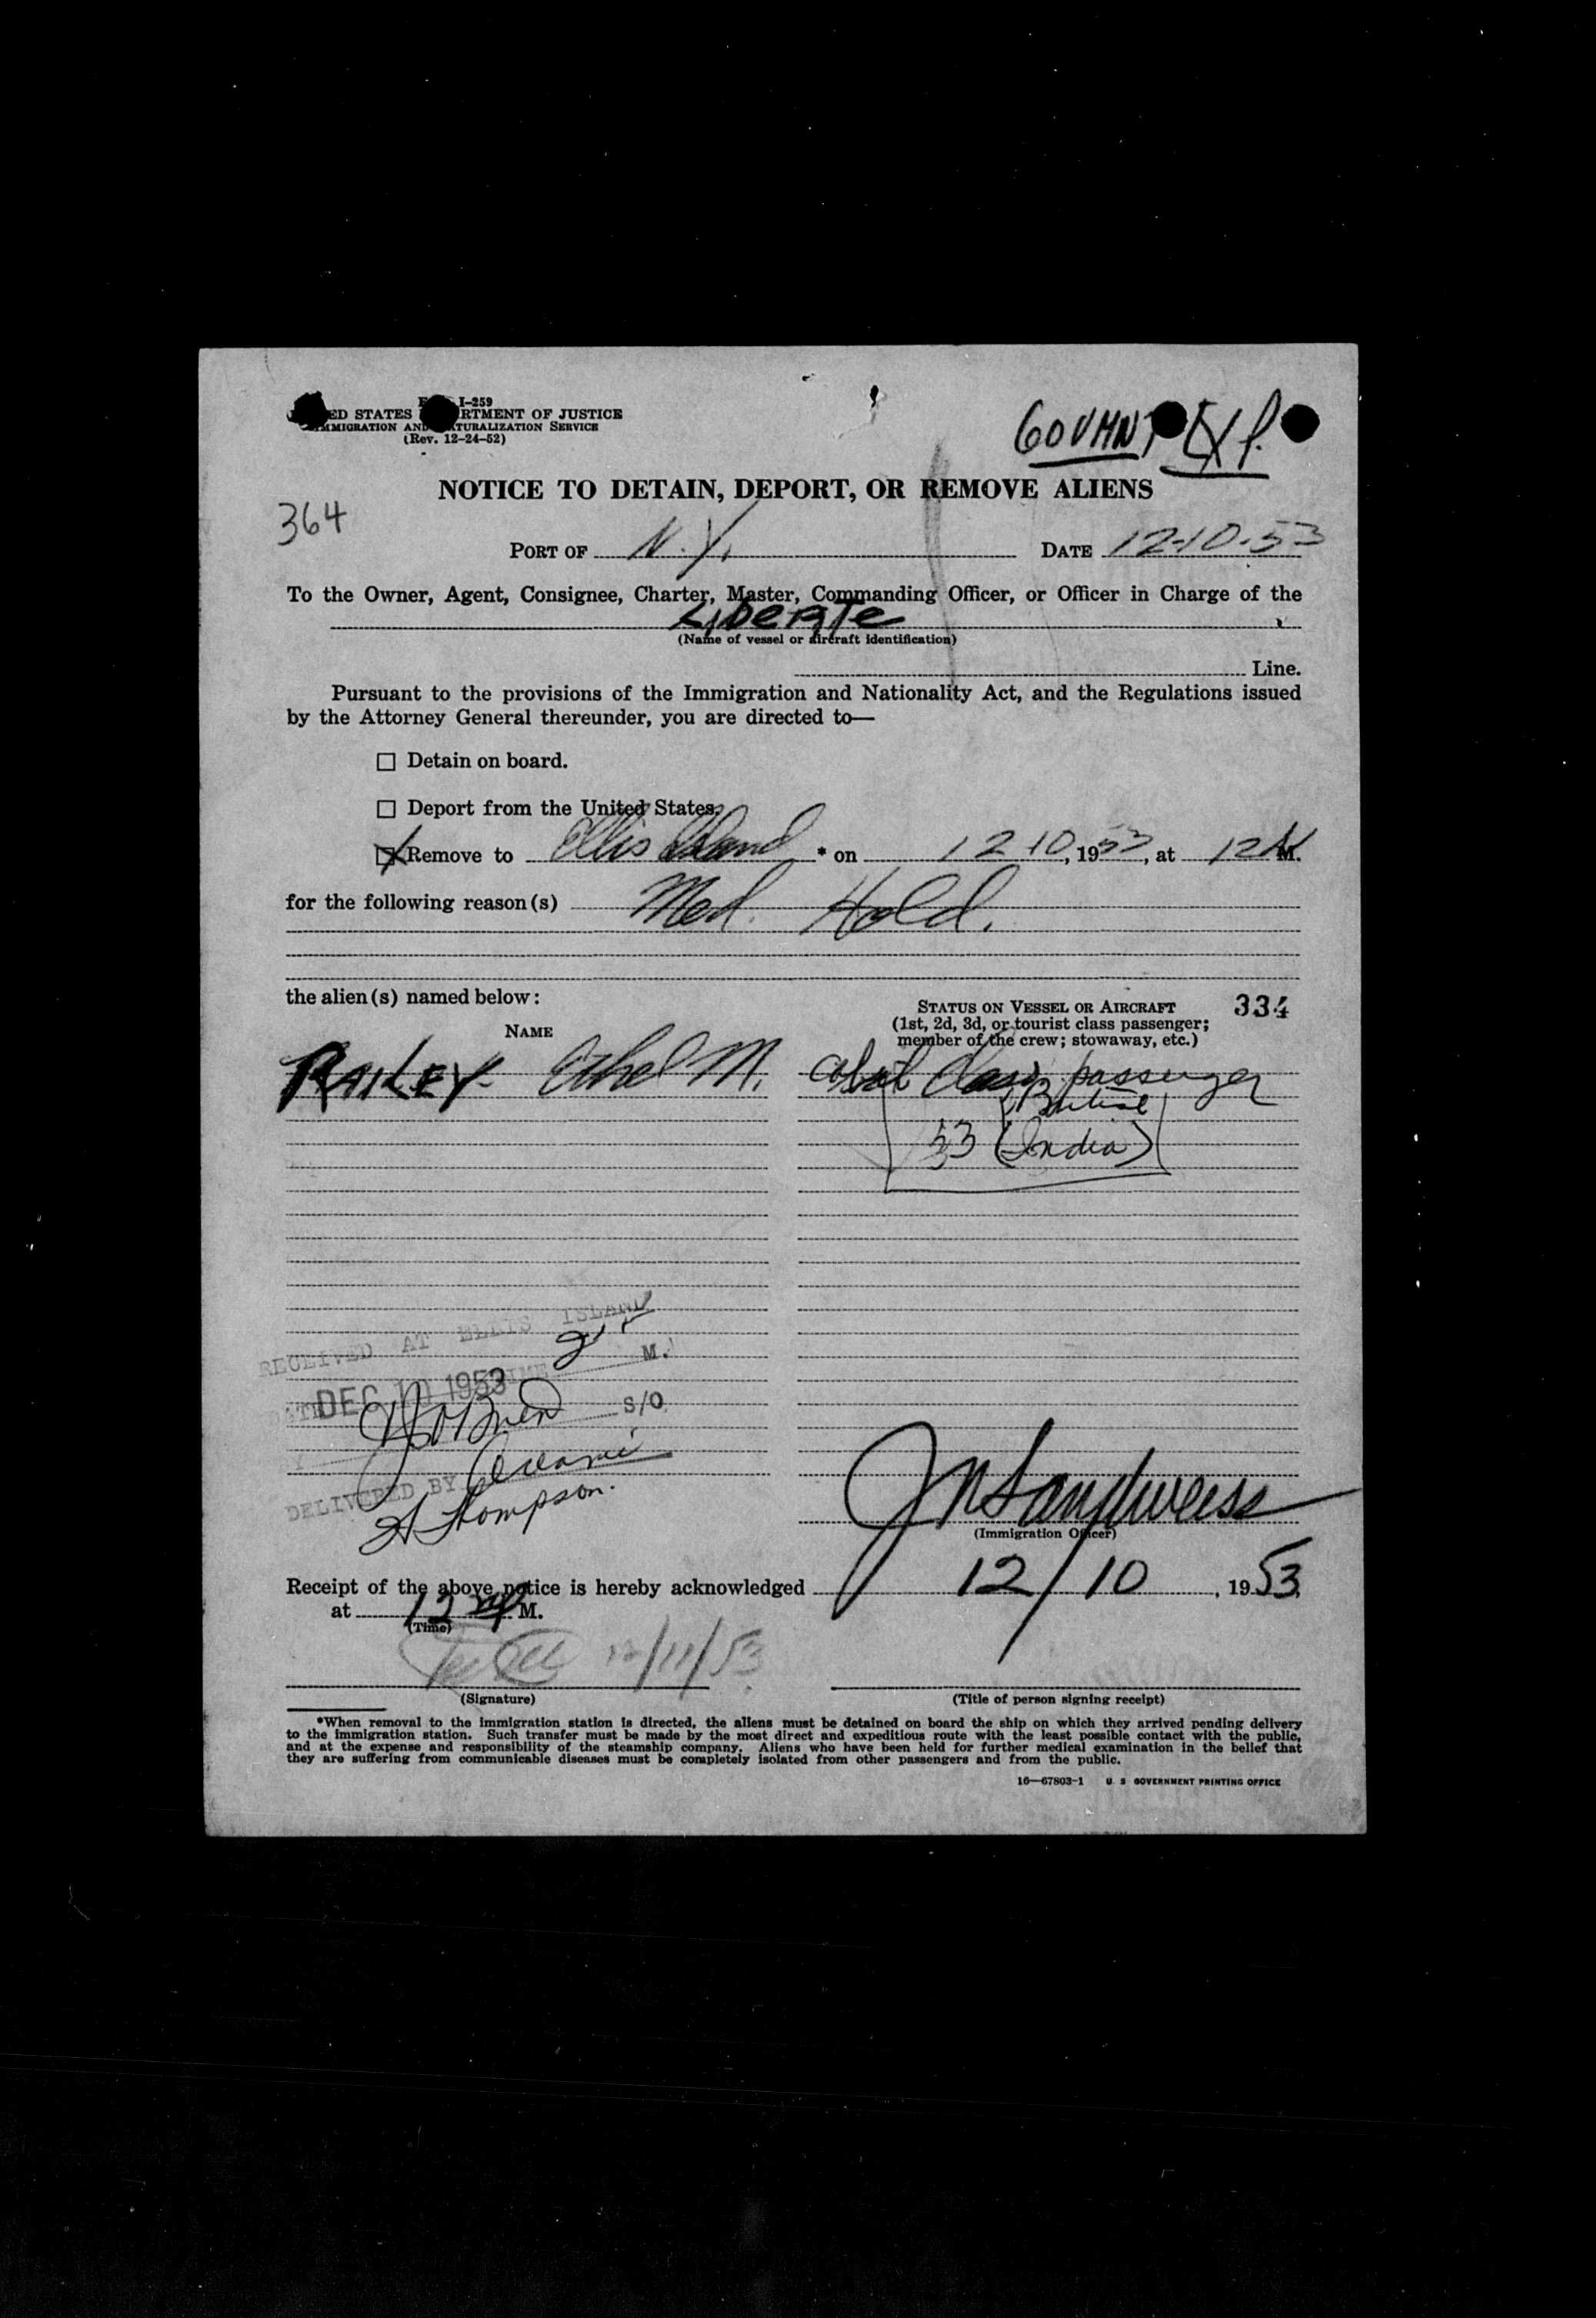 I-259
ED STATES RTMENT OF JUSTICE
MMIGRATION AND TURALIZATION SERVICE
(Rev. 12-24-52)
GOVMNT EXP.
NOTICE TO DETAIN, DEPORT, OR REMOVE ALIENS
364
PORT OF N.Y. DATE 12-10-53
To the Owner, Agent, Consignee, Charter, Master, Commanding Officer, or Officer in Charge of the
Liberte
(Name of vessel or aircraft identification)
Line.
Pursuant to the provisions of the Immigration and Nationality Act, and the Regulations issued
by the Attorney General thereunder, you are directed to—
Detain on board.
Deport from the United States.
Remove to Ellis Island * on 12 10, 1953, at 12 M.
for the following reason(s) Med. Hold.
the alien(s) named below:
STATUS ON VESSEL OR AIRCRAFT 334
(1st, 2d, 3d, or tourist class passenger;
member of the crew; stowaway, etc.)
NAME
RAILEY Ethel M. Class passenger
British
53 (India)
RECEIVED AT ELLIS ISLAND
DATE DEC 10 1953 TIME 2 M.
BY O'Brien S/O
DELIVERED BY
Thompson.
J N Sandweiss
(Immigration Officer)
Receipt of the above notice is hereby acknowledged 12/10, 1953
at 12 M.
(Time)
12/11/53
(Signature)
(Title of person signing receipt)
*When removal to the immigration station is directed, the aliens must be detained on board the ship on which they arrived pending delivery
to the immigration station. Such transfer must be made by the most direct and expeditious route with the least possible contact with the public,
and at the expense and responsibility of the steamship company. Aliens who have been held for further medical examination in the belief that
they are suffering from communicable diseases must be completely isolated from other passengers and from the public.
16—67803-1 U. S. GOVERNMENT PRINTING OFFICE